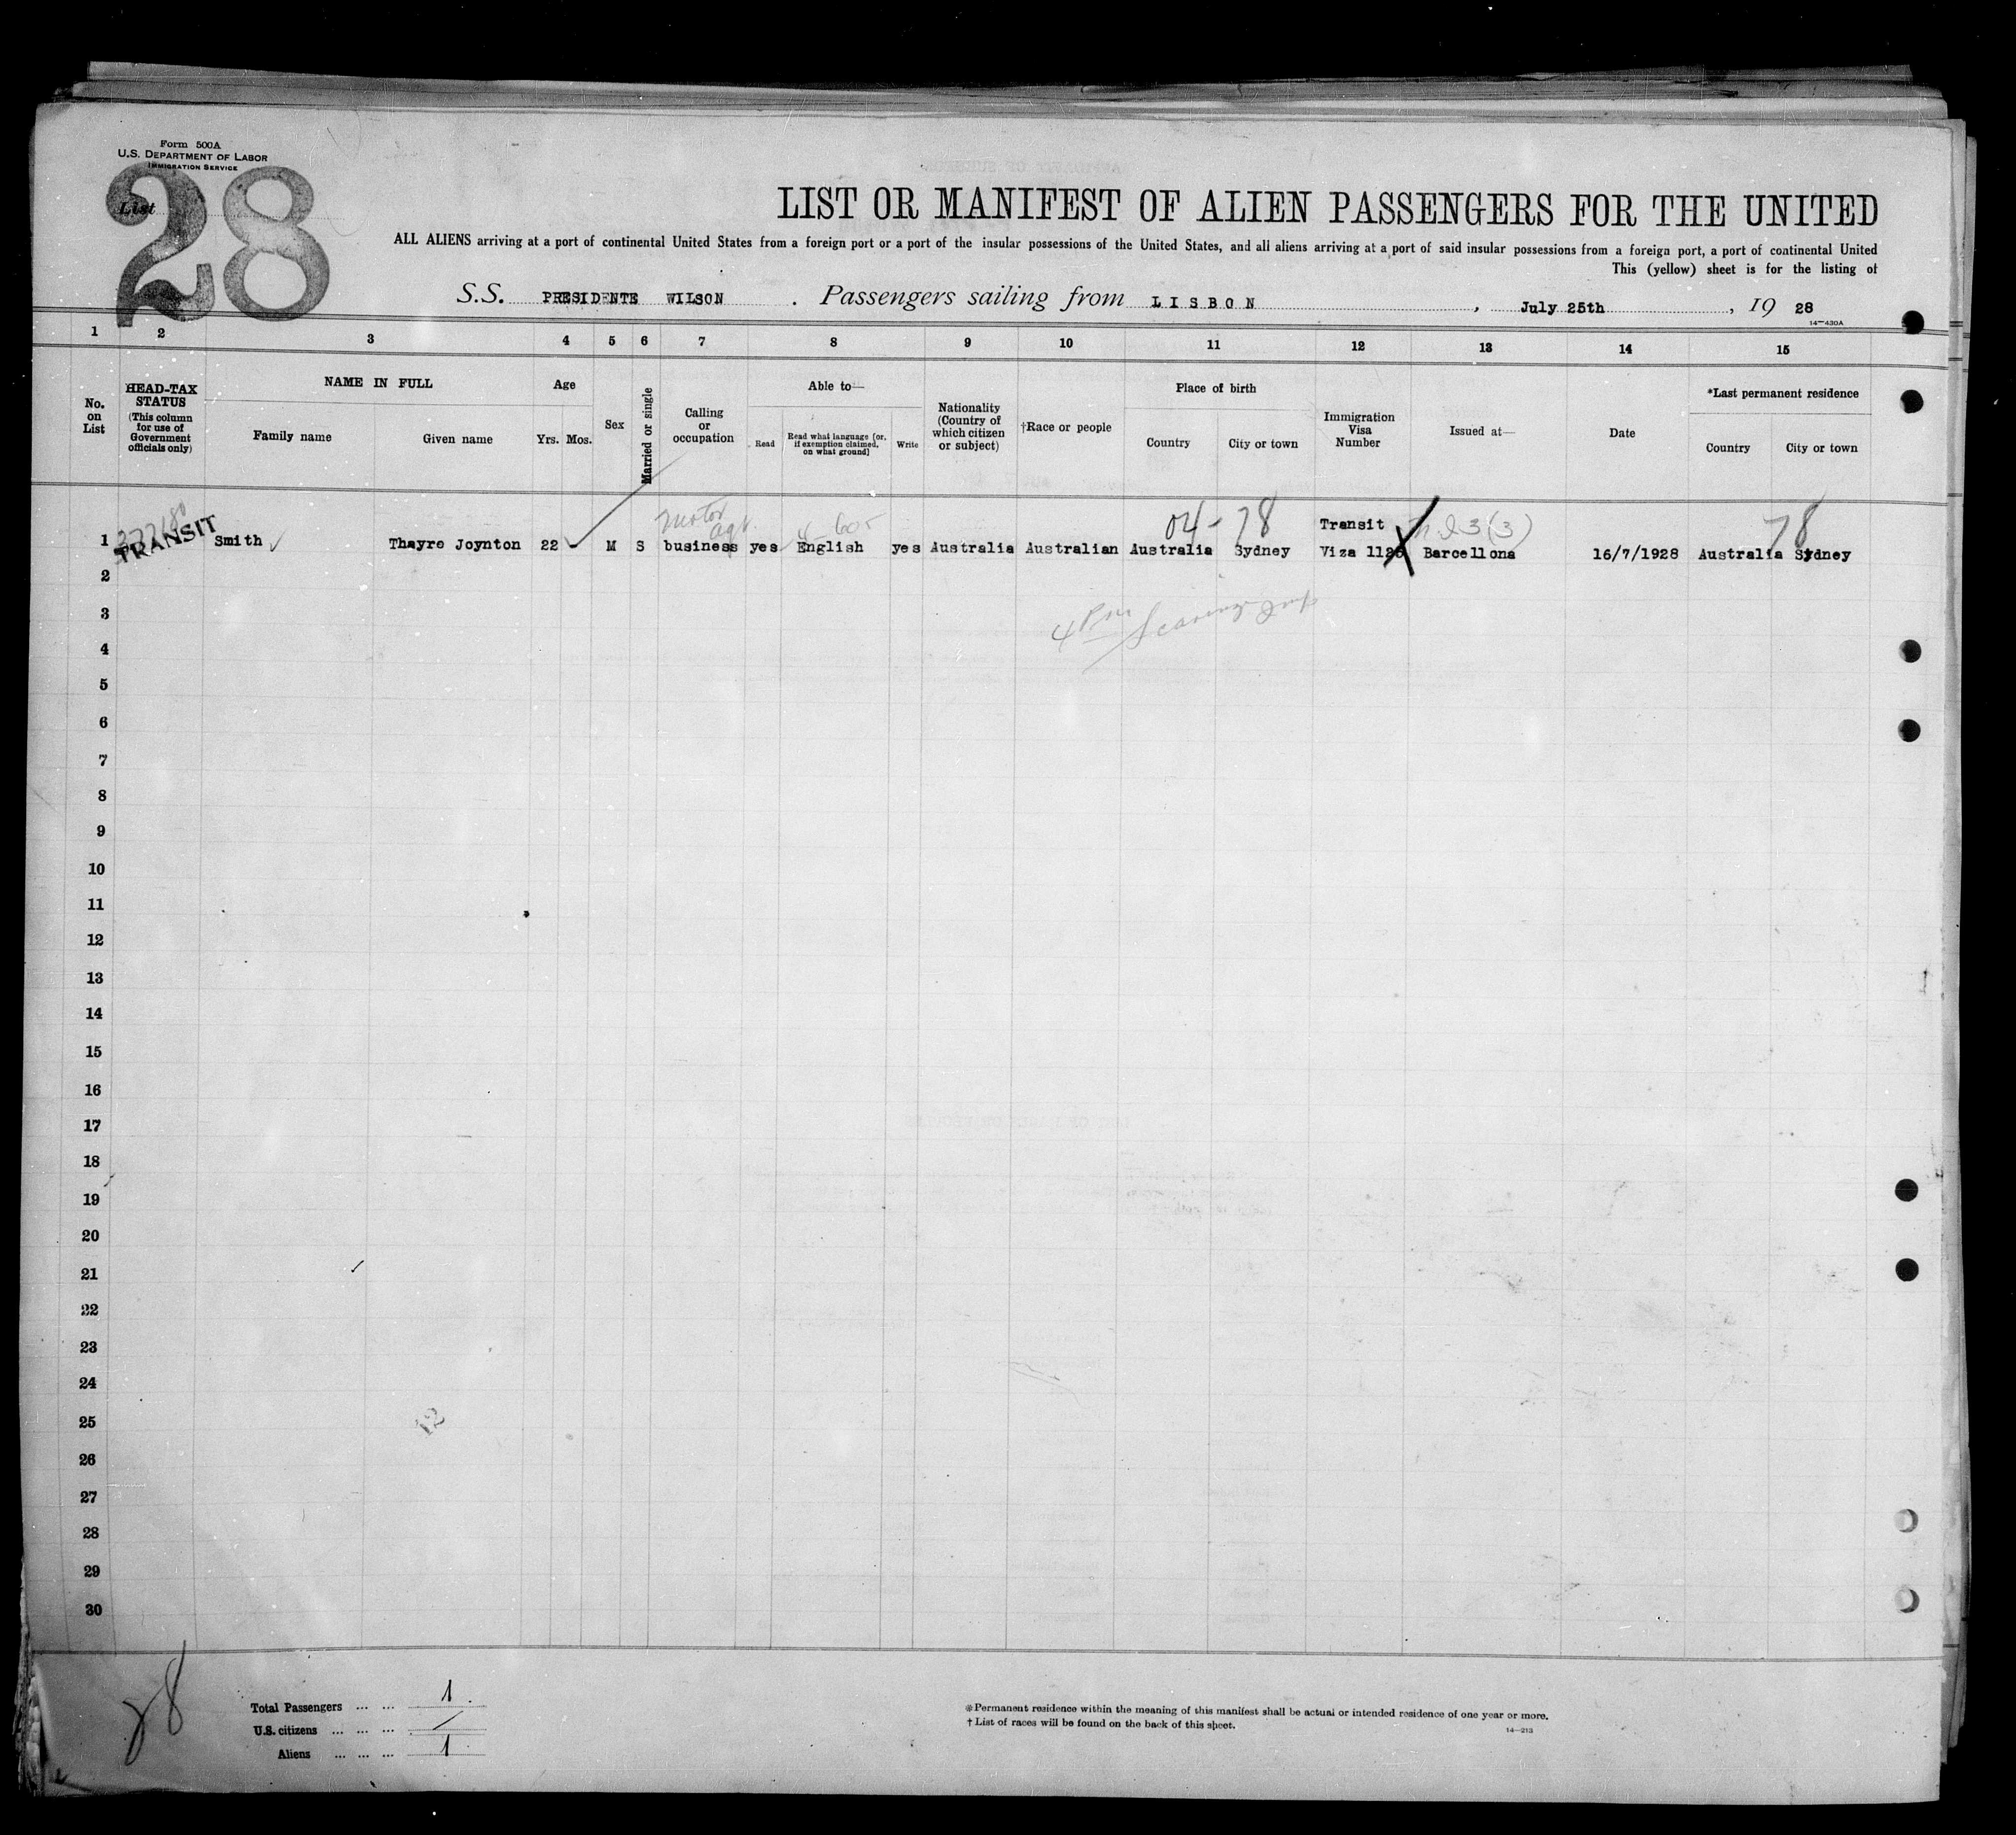 Form 500A
U.S. DEPARTMENT OF LABOR
IMMIGRATION SERVICE
List
28
LIST OR MANIFEST OF ALIEN PASSENGERS FOR THE UNITED
ALL ALIENS arriving at a port of continental United States from a foreign port or a port of the insular possessions of the United States, and all aliens arriving at a port of said insular possessions from a foreign port, a port of continental United
This (yellow) sheet is for the listing of
S.S. PRESIDENTE WILSON . Passengers sailing from LISBON , July 25th , 19 28
14—430A
1 2 3 4 5 6 7 8 9 10 11 12 13 14 15
No. on List
HEAD-TAX STATUS
(This column for use of Government officials only)
NAME IN FULL
Family name
Given name
Age
Yrs. Mos.
Sex
Married or single
Calling or occupation
Able to—
Read
Read what language [or, if exemption claimed, on what ground]
Write
Nationality (Country of which citizen or subject)
†Race or people
Place of birth
Country
City or town
Immigration Visa Number
Issued at—
Date
*Last permanent residence
Country
City or town
motor agt. 04-78 Transit 78
1 TRANSIT Smith Thayre Joynton 22 M S business yes English yes Australia Australian Australia Sydney Viza Barcellona 16/7/1928 Australia Sydney
2
3
4 pm
4
5
6
7
8
9
10
11
12
13
14
15
16
17
18
19
20
21
22
23
24
25
26
27
28
29
30
Total Passengers ... ... 1.
U.S. citizens ... ... ... /
Aliens ... ... ... 1.
*Permanent residence within the meaning of this manifest shall be actual or intended residence of one year or more.
†List of races will be found on the back of this sheet.
14—213